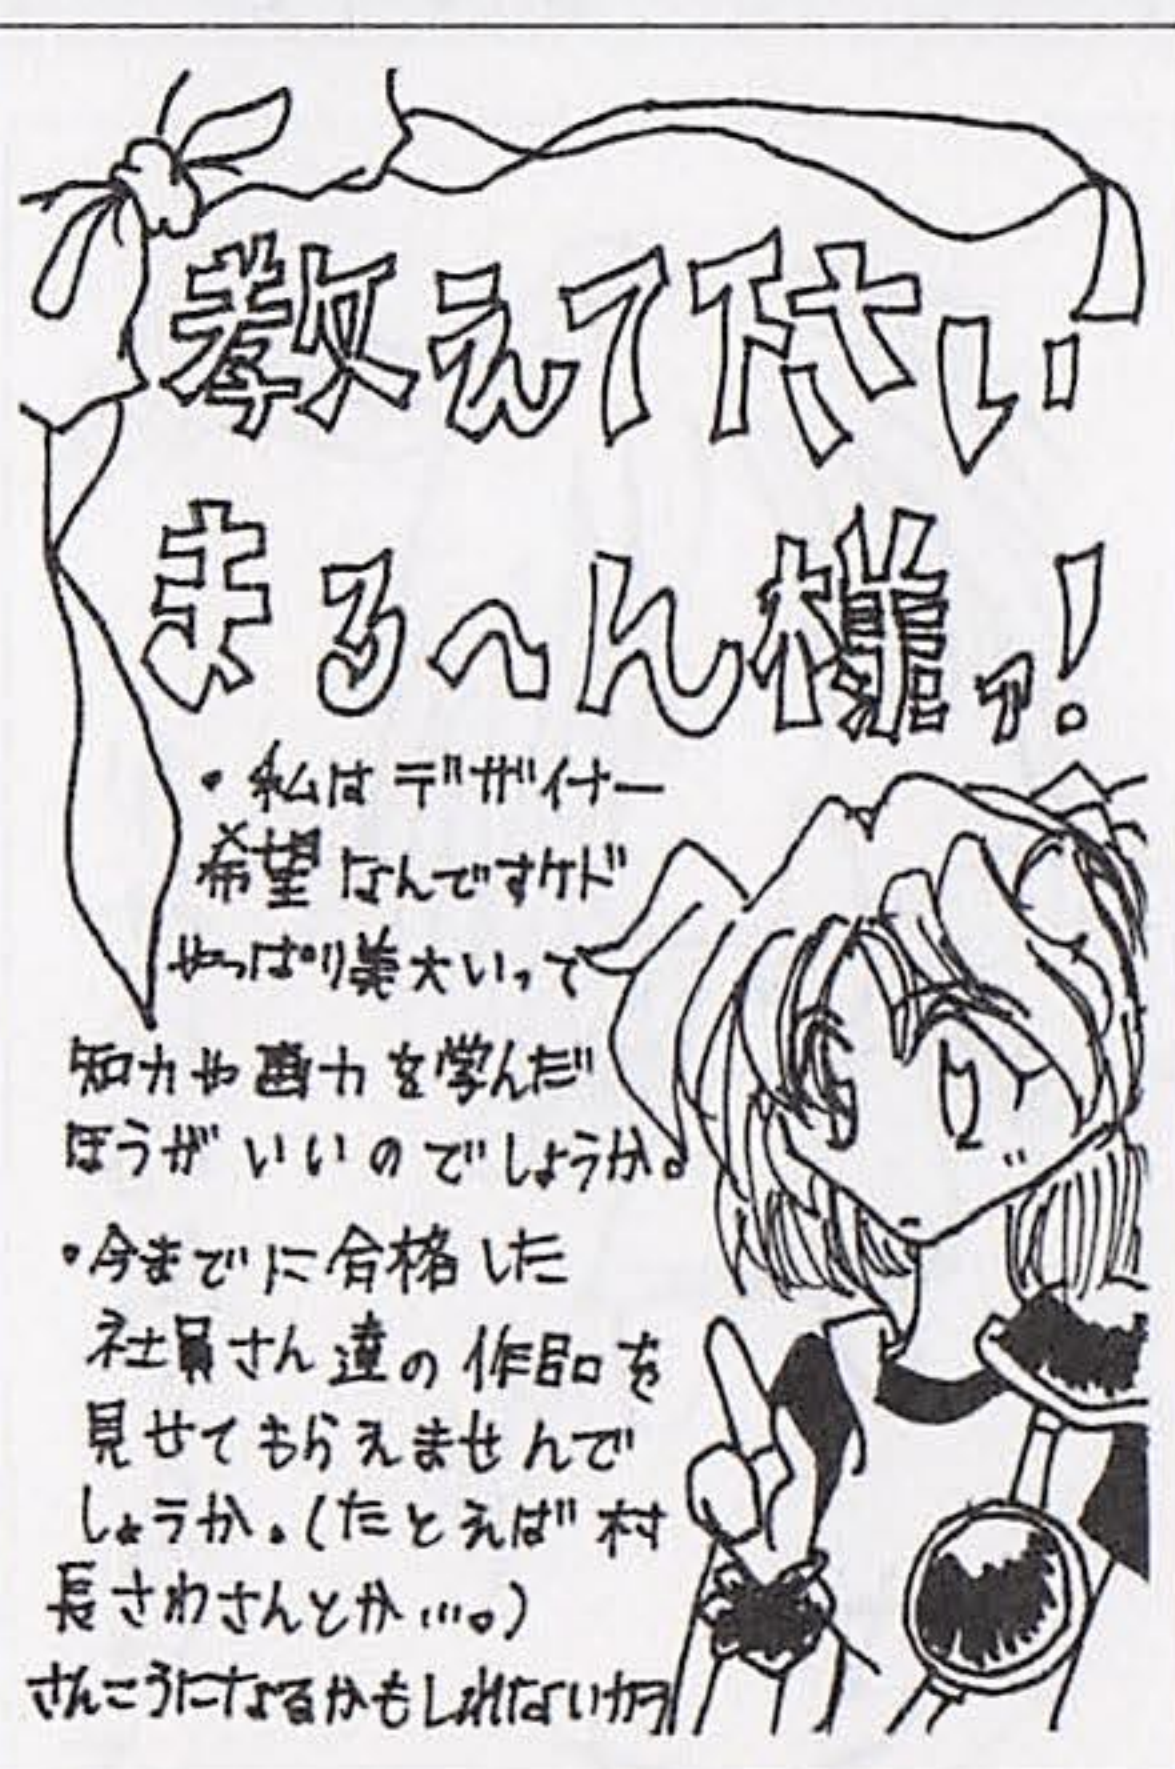 教えて下さい
まる〜ん様ッ!
・私はデザイナー
希望なんですケド
やっぱり美大いって
知力や画力を学んだ
ほうがいいのでしょうか。
・今までに合格した
社員さん達の作品を
見せてもらえませんで
しょうか。(たとえば村
長さわさんとか…。)
さんこうになるかもしれないカラ